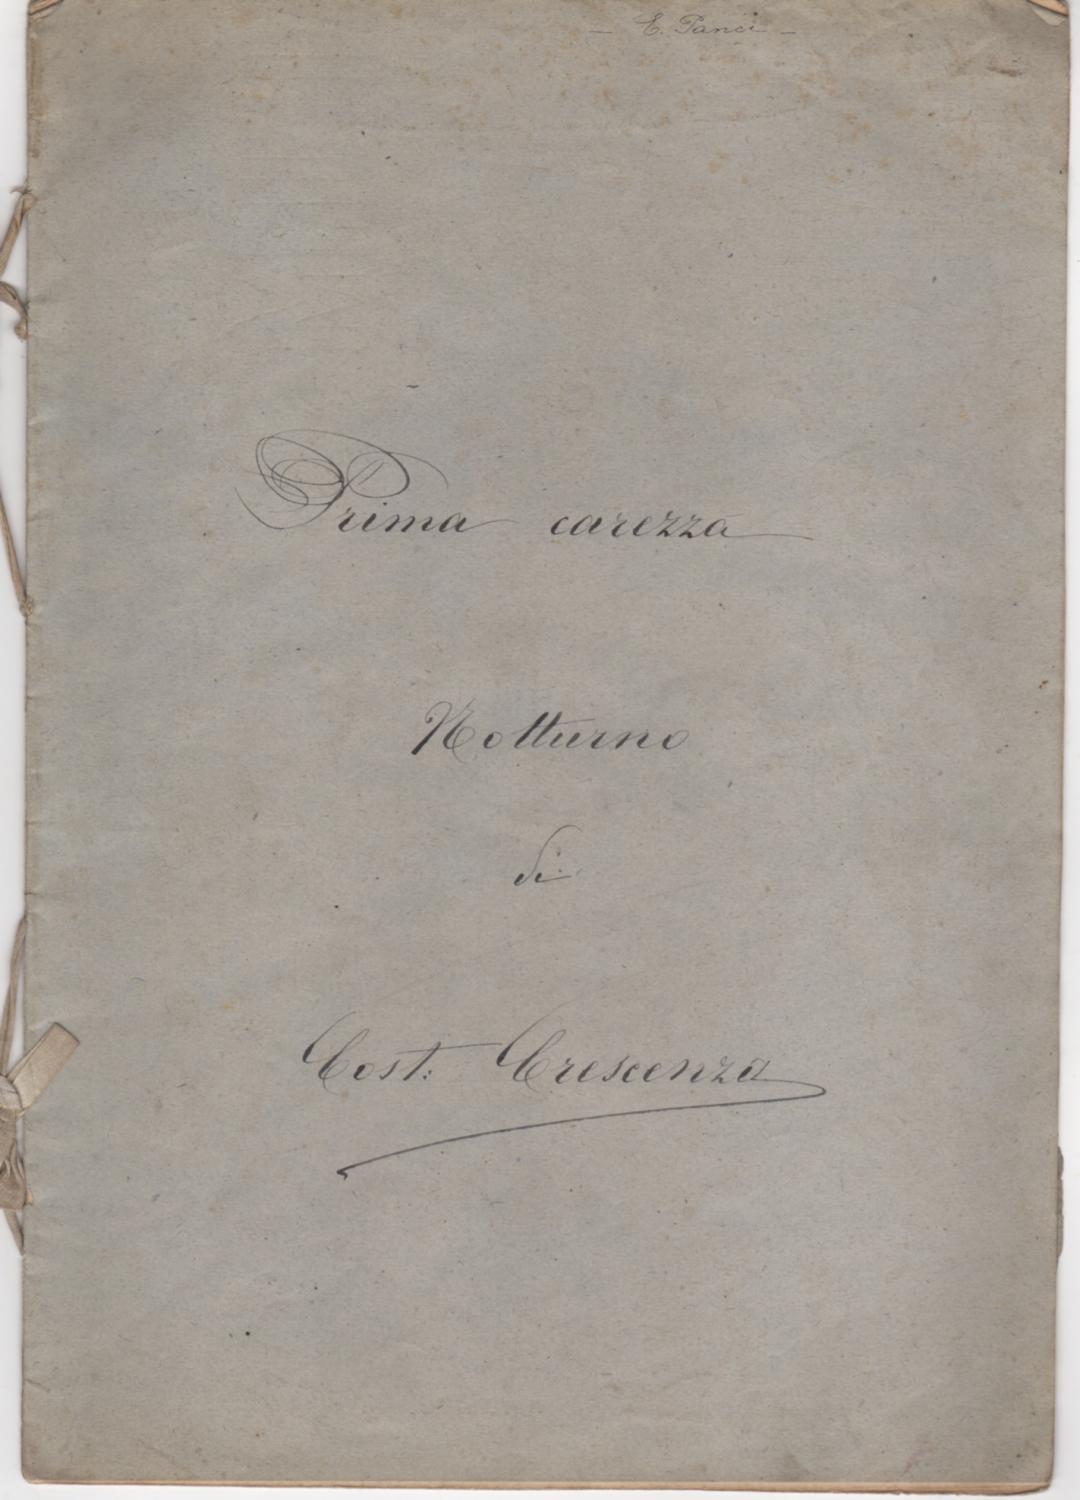 – E. Panci –
Prima carezza
Notturno
di
Cost: Crescenza